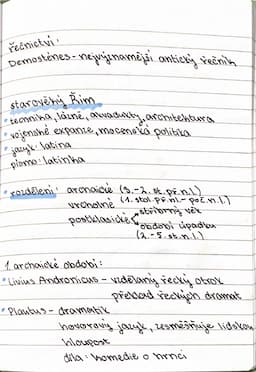 řečnictví:
Demosténes - nejvýznamnější antický řečník
starověký Řím
• technika, lázně, akvadukty, architektura
• vojenské expanze, mocenská politika
• jazyk: latina
písmo: latinka
• rozdělení: archaické (3.-2. st. př. n. l.)
vrcholné (1. stol. př. nl. - poč. n. l.)
postklasické → stříbrný věk
→ období úpadku
(2.-5. st. n. l.)
1. archaické období:
• Livius Andronicus - vzdělaný řecký otrok
překlad řeckých dramat
• Plautus - dramatik
hovorový jazyk, zesměšňuje lidskou
hloupost
díla: Komedie o hrnci